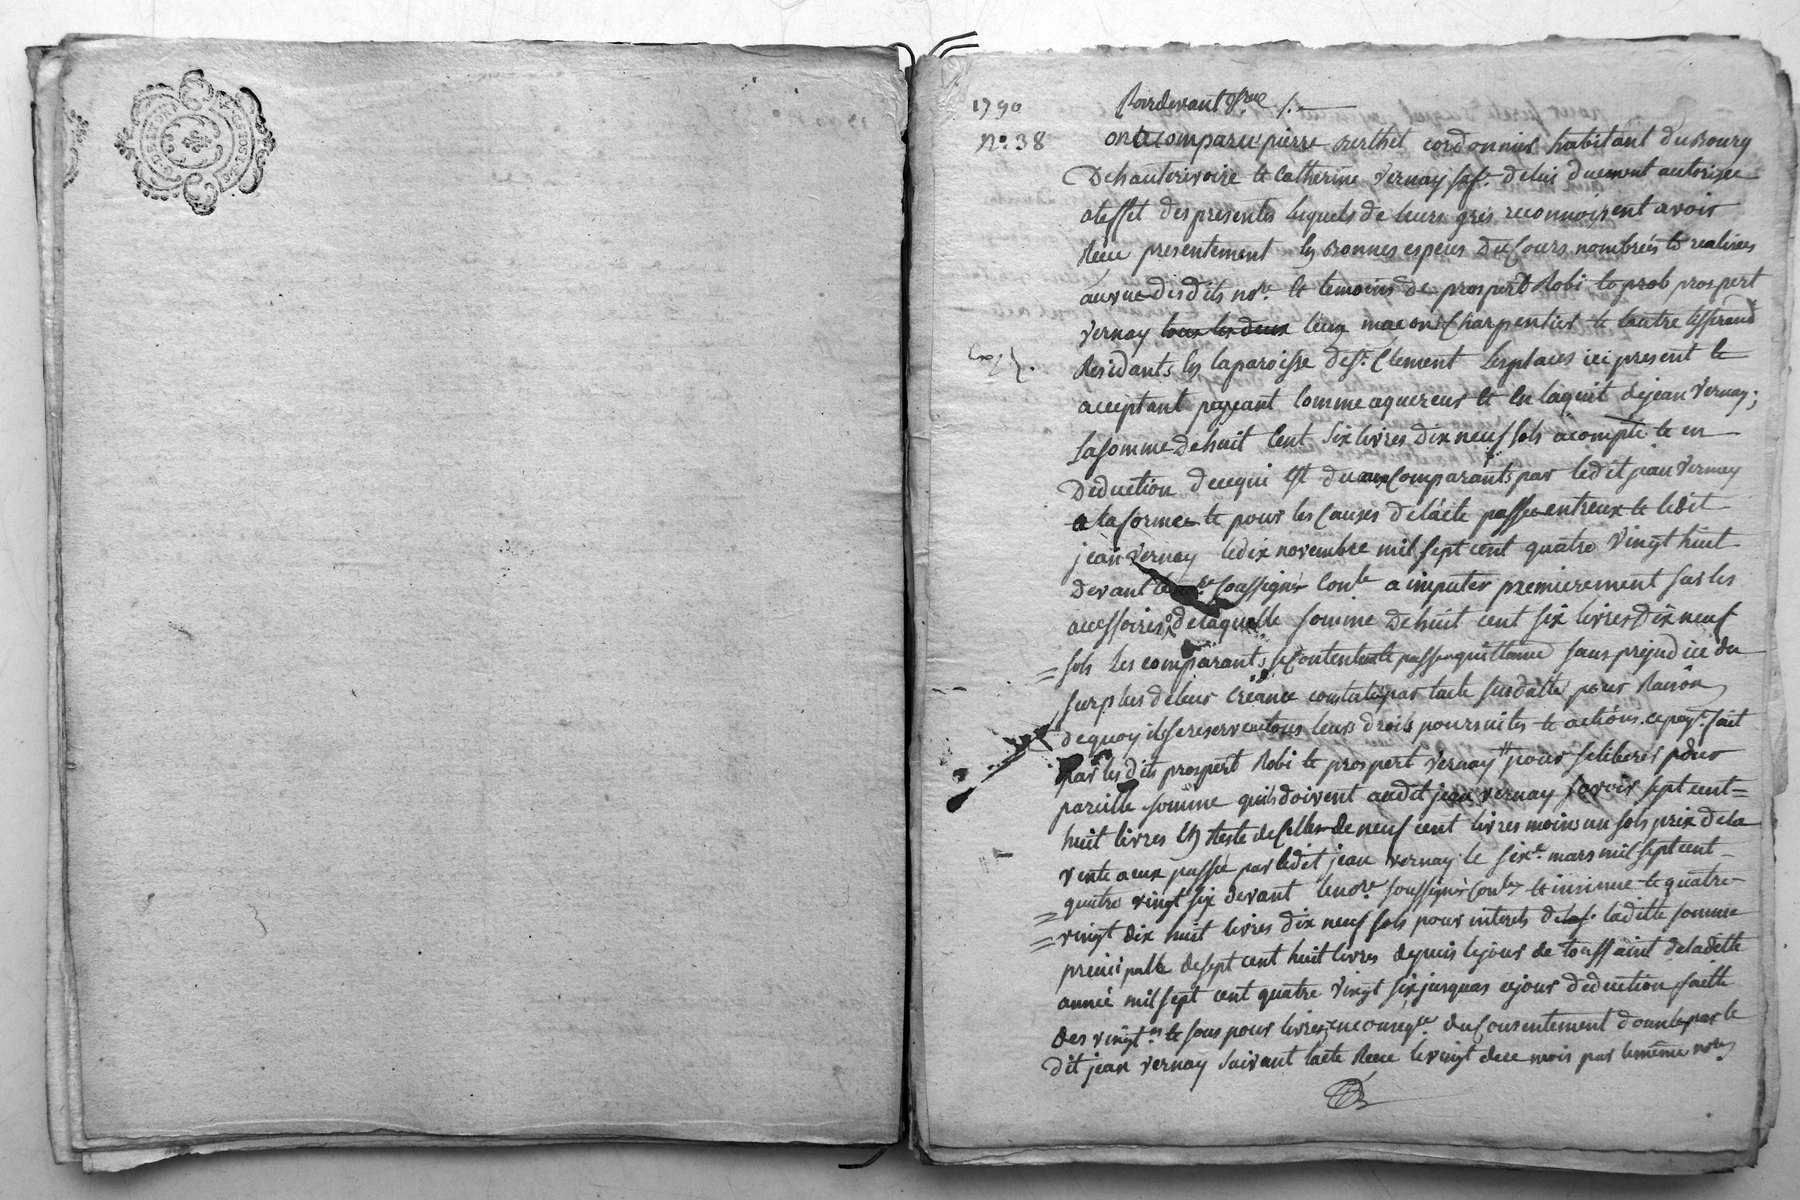 1790
Pardevant
N.o 38
ont comparu pierre Berthet cordonnier habitant du Bourg
De hauterivoire et Catherine Vernay sa f.e de lui duement autorisée
a leffet des presentes lesquels de leurs grés reconnoissent avoir
Receu presentement en Bonnes especes du Cours nombrées et realisées
au vue des dits no.re et temoins de prospert Robi et prob prospert
vernay tous les deux leux macon Charpentier et lautre tisserand
Residants en la paroisse de S.t Clement Lesplaces ici present et
acceptant payeant comme aquereur et en laquit de jean Vernay;
La somme de huit Cent Six livres dix neuf sols acompte et en
Déduction de ce qui est du aux Comparants par ledit jean Vernay
a la forme et pour les Causes de lacte passé entreux et ledit
jean Vernay le dix novembre mil sept cent quatre Vingt huit
devant le no.re soussigné Con.le a imputer premierement sur les
accessoires de laquelle somme de huit cent six livres Dix neuf
sols Les comparants se contentent et passent quittance sans prejudice du
surplus de leur Créance constatée par lacte susdatté pour Raison
de quoy ils se reservent tous leurs droits poursuites et actions. ce pay.t fait
par les dits prospert Robi et prospert Vernay pour se liberer pour
pareille somme quils doivent audit jean vernay savoir sept cent
huit livres En Reste de Celle de neuf cent livres moins un sols prix de la
vente a eux passée par ledit jean vernay le six.e mars mil sept cent
quatre vingt six devant le no.re soussigné Con.le et insinué et quatre
vingt dix huit livres dix neuf sols pour interets de las. laditte somme
principalle de sept cent huit livres depuis le jour de toussaint de ladette
année mil sept cent quatre Vingt six jusquas ce jour deduction faitte
des vingt.es et sous pour livres du Consentement donné par le
dit jean vernay Suivant lacte Receu le vingt de ce mois par le même no.re